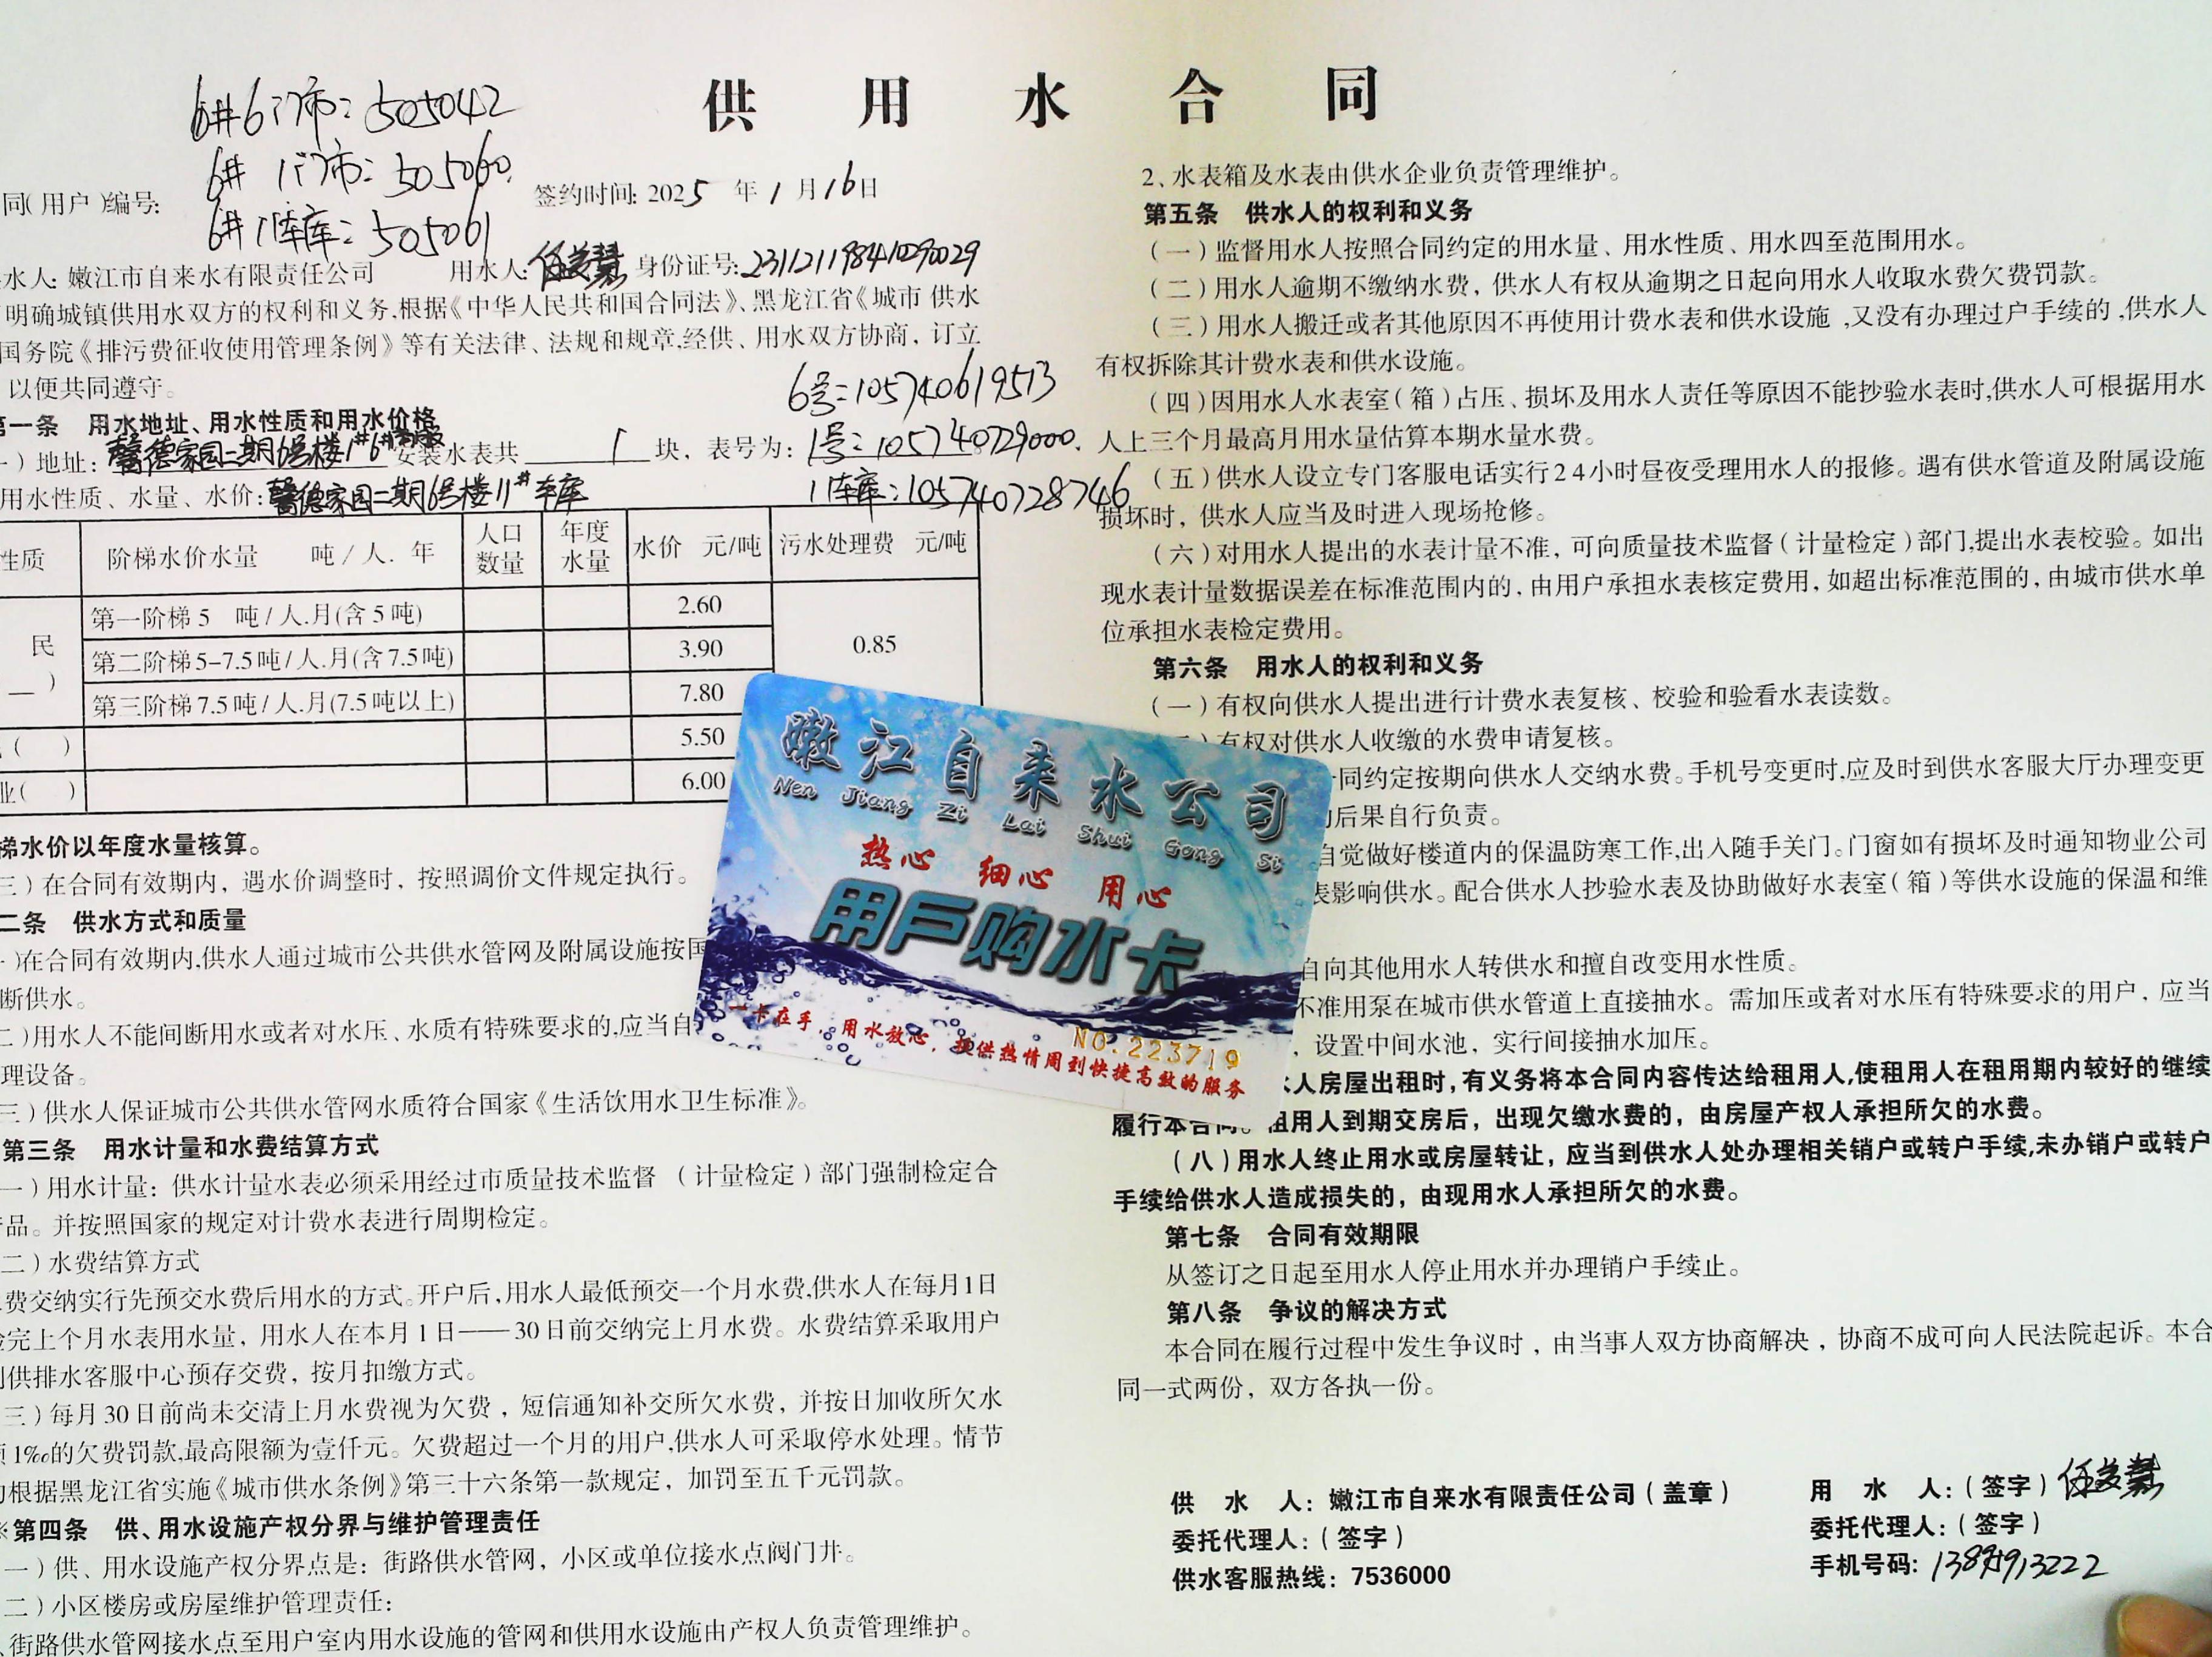 供用水合同
6#6门市: 505042
6# 1门市: 505060.
6#11车库: 505061
同(用户)编号:
签约时间: 2025 年 1 月 16 日
水人: 嫩江市自来水有限责任公司 用水人: 身份证号: 231121198410290029
明确城镇供用水双方的权利和义务,根据《中华人民共和国合同法》、黑龙江省《城市 供水
国务院《排污费征收使用管理条例》等有关法律、法规和规章,经供、用水双方协商，订立
以便共同遵守。
6号:105740619513
第一条 用水地址、用水性质和用水价格
一）地址: 馨德家园二期6号楼1#6# 安装水表共 1 块，表号为: 1号:105740729000.
用水性质、水量、水价: 馨德家园二期6号楼11#车库 11车库:105740728746
性质 阶梯水价水量 吨/人.年 人口数量 年度水量 水价 元/吨 污水处理费 元/吨
民 第一阶梯 5 吨/人.月(含5吨) 2.60 0.85
第二阶梯5-7.5吨/人.月(含7.5吨) 3.90
第三阶梯7.5吨/人.月(7.5吨以上) 7.80
( ) 5.50
业( ) 6.00
梯水价以年度水量核算。
三）在合同有效期内，遇水价调整时，按照调价文件规定执行。
二条 供水方式和质量
)在合同有效期内,供水人通过城市公共供水管网及附属设施按国
断供水。
二)用水人不能间断用水或者对水压、水质有特殊要求的,应当自
理设备。
三)供水人保证城市公共供水管网水质符合国家《生活饮用水卫生标准》。
第三条 用水计量和水费结算方式
一)用水计量：供水计量水表必须采用经过市质量技术监督 （计量检定）部门强制检定合
品。并按照国家的规定对计费水表进行周期检定。
二)水费结算方式
费交纳实行先预交水费后用水的方式。开户后,用水人最低预交一个月水费,供水人在每月1日
完上个月水表用水量，用水人在本月1日——30日前交纳完上月水费。水费结算采取用户
到供排水客服中心预存交费，按月扣缴方式。
三)每月30日前尚未交清上月水费视为欠费，短信通知补交所欠水费，并按日加收所欠水
1‰的欠费罚款,最高限额为壹仟元。欠费超过一个月的用户,供水人可采取停水处理。情节
根据黑龙江省实施《城市供水条例》第三十六条第一款规定，加罚至五千元罚款。
※第四条 供、用水设施产权分界与维护管理责任
一)供、用水设施产权分界点是：街路供水管网，小区或单位接水点阀门井。
二)小区楼房或房屋维护管理责任:
、街路供水管网接水点至用户室内用水设施的管网和供用水设施由产权人负责管理维护。
2、水表箱及水表由供水企业负责管理维护。
第五条 供水人的权利和义务
（一）监督用水人按照合同约定的用水量、用水性质、用水四至范围用水。
（二）用水人逾期不缴纳水费，供水人有权从逾期之日起向用水人收取水费欠费罚款。
（三）用水人搬迁或者其他原因不再使用计费水表和供水设施,又没有办理过户手续的,供水人
有权拆除其计费水表和供水设施。
（四）因用水人水表室（箱）占压、损坏及用水人责任等原因不能抄验水表时,供水人可根据用水
人上三个月最高月用水量估算本期水量水费。
（五）供水人设立专门客服电话实行24小时昼夜受理用水人的报修。遇有供水管道及附属设施
损坏时，供水人应当及时进入现场抢修。
（六）对用水人提出的水表计量不准，可向质量技术监督（计量检定）部门,提出水表校验。如出
现水表计量数据误差在标准范围内的，由用户承担水表核定费用，如超出标准范围的，由城市供水单
位承担水表检定费用。
第六条 用水人的权利和义务
（一）有权向供水人提出进行计费水表复核、校验和验看水表读数。
有权对供水人收缴的水费申请复核。
同约定按期向供水人交纳水费。手机号变更时,应及时到供水客服大厅办理变更
后果自行负责。
自觉做好楼道内的保温防寒工作,出入随手关门。门窗如有损坏及时通知物业公司
表影响供水。配合供水人抄验水表及协助做好水表室（箱）等供水设施的保温和维
自向其他用水人转供水和擅自改变用水性质。
不准用泵在城市供水管道上直接抽水。需加压或者对水压有特殊要求的用户，应当
，设置中间水池，实行间接抽水加压。
人房屋出租时，有义务将本合同内容传达给租用人,使租用人在租用期内较好的继续
履行本合同。租用人到期交房后，出现欠缴水费的，由房屋产权人承担所欠的水费。
（八）用水人终止用水或房屋转让，应当到供水人处办理相关销户或转户手续,未办销户或转户
手续给供水人造成损失的，由现用水人承担所欠的水费。
第七条 合同有效期限
从签订之日起至用水人停止用水并办理销户手续止。
第八条 争议的解决方式
本合同在履行过程中发生争议时，由当事人双方协商解决，协商不成可向人民法院起诉。本合
同一式两份，双方各执一份。
供 水 人：嫩江市自来水有限责任公司（盖章）
委托代理人：（签字）
供水客服热线：7536000
用 水 人：（签字）
委托代理人：（签字）
手机号码:
嫩江自来水公司
Nen Jiang Zi Lai Shui Gong Si
热心 细心 用心
用户购水卡
NO.223719
一卡在手，用水放心，提供热情周到快捷高效的服务